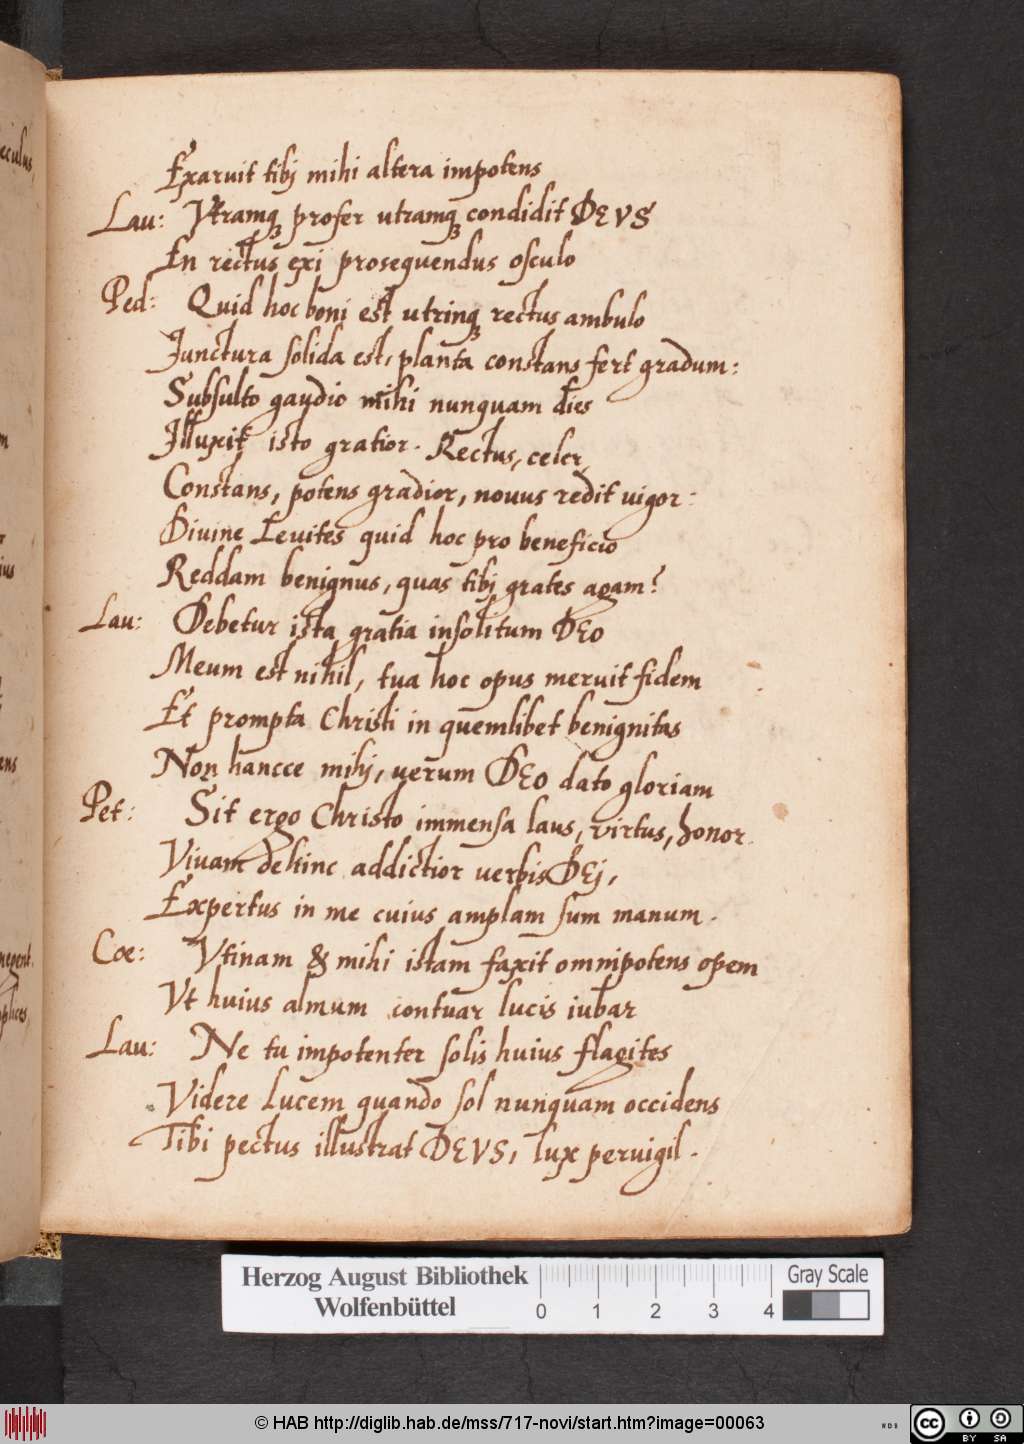 Exaruit tibj mihi altera impotens
Lau: Vtramqꝫ profer utramqꝫ condidit DEVS
En rectus exi prosequendus osculo
Ped: Quid hoc boni est utrinqꝫ rectus ambulo
Junctura solida est, planta constans fert gradum:
Subsulto gaudio mihi nunquam dies
Illuxit isto gratior. Rectus, celer,
Constans, potens gradior, novus redit uigor:
Diuine Leuites quid hoc pro beneficio
Reddam benignus, quas tibj grates agam?
Lau: Debetur ista gratia insolitum DEO
Meum est nihil, tua hoc opus meruit fidem
Et prompta Christi in quemlibet benignitas
Non hancce mihj, uerum DEO dato gloriam
Pet: Sit ergo Christo immensa laus, virtus, honor.
Viuam dehinc addictior uerbis DEj,
Expertus in me cuius amplam sum manum.
Coe: Vtinam & mihi istam faxit omnipotens opem
Vt huius almum contuar lucis iubar
Lau: Ne tu impotenter solis huius flagites
Videre lucem quando sol nunquam occidens
Tibi pectus illustrat DEVS, lux peruigil.
Herzog August Bibliothek
Wolfenbüttel
0 1 2 3 4
Gray Scale
© HAB http://diglib.hab.de/mss/717-novi/start.htm?image=00063
cc BY SA